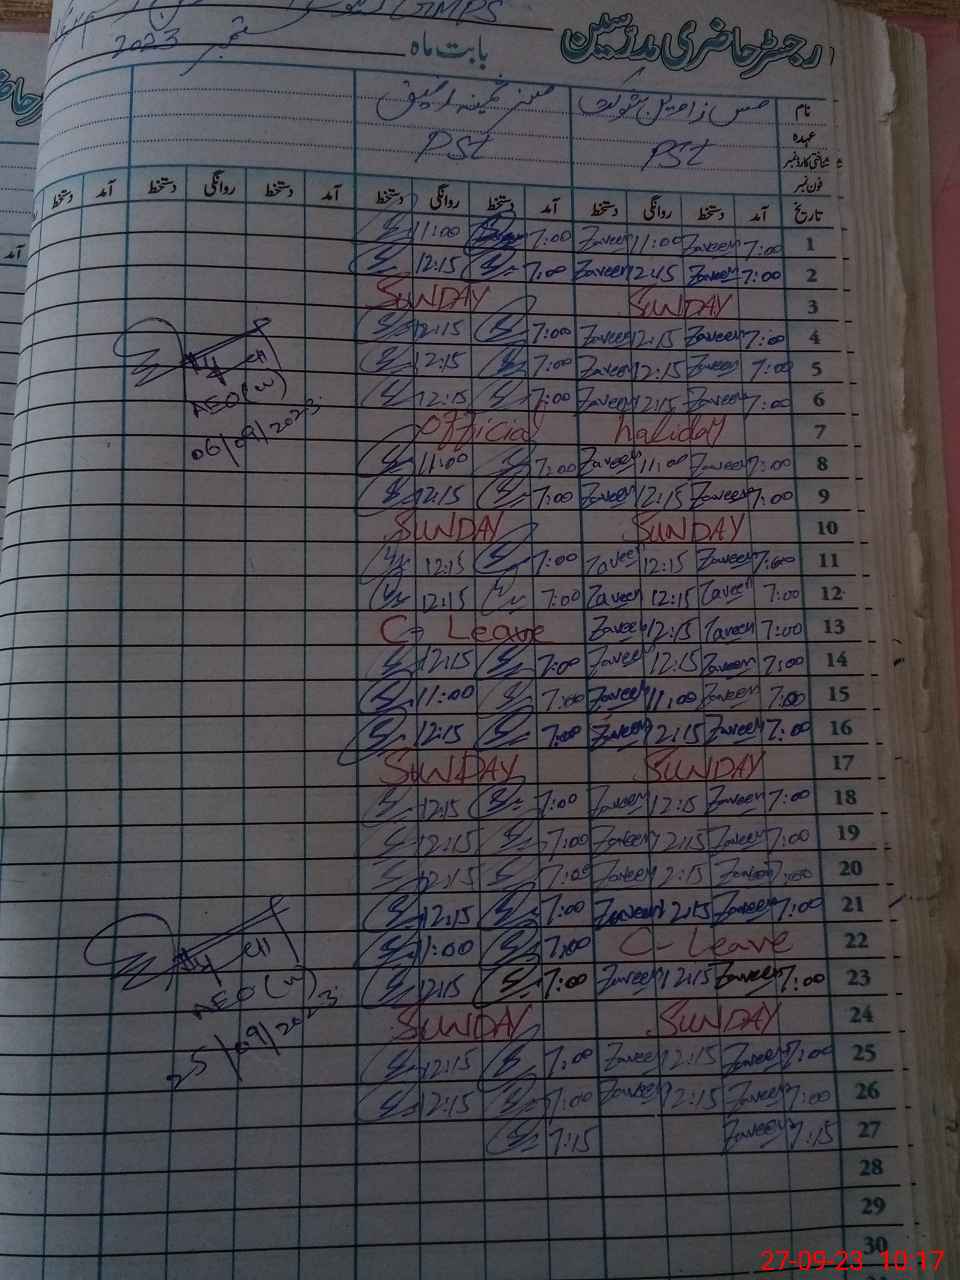 GMPS
رجسٹر حاضری مدرسین
بابت ماہ ستمبر 2023
نام مس شوکت مسز
عہدہ PST PST
شناختی کارڈ نمبر
فون نمبر
تاریخ آمد دستخط روانگی دستخط آمد دستخط روانگی دستخط آمد دستخط روانگی دستخط آمد دستخط
1 7:00 Zaveen 11:00 Zaveen 7:00 11:00
2 7:00 Zaveen 12:15 Zaveen 7:00 12:15
3 SUNDAY SUNDAY
4 7:00 Zaveen 12:15 Zaveen 7:00 12:15
5 7:00 Zaveen 12:15 Zaveen 7:00 12:15
6 7:00 Zaveen 12:15 Zaveen 7:00 12:15
7 official holiday
8 7:00 Zaveen 11:00 Zaveen 7:00 11:00
9 7:00 Zaveen 12:15 Zaveen 7:00 12:15
10 SUNDAY SUNDAY
11 7:00 Zaveen 12:15 Zaveen 7:00 12:15
12 7:00 Zaveen 12:15 Zaveen 7:00 12:15
13 7:00 Zaveen 12:15 Zaveen C- Leave
14 7:00 Zaveen 12:15 Zaveen 7:00 12:15
15 7:00 Zaveen 11:00 Zaveen 7:00 11:00
16 7:00 Zaveen 12:15 Zaveen 7:00 12:15
17 SUNDAY SUNDAY
18 7:00 Zaveen 12:15 Zaveen 7:00 12:15
19 7:00 Zaveen 12:15 Zaveen 7:00 12:15
20 7:00 Zaveen 12:15 Zaveen 7:00 12:15
21 7:00 Zaveen 12:15 Zaveen 7:00 12:15
22 C- Leave 7:00 11:00
23 7:00 Zaveen 12:15 Zaveen 7:00 12:15
24 SUNDAY SUNDAY
25 7:00 Zaveen 12:15 Zaveen 7:00 12:15
26 7:00 Zaveen 12:15 Zaveen 7:00 12:15
27 7:15 Zaveen 7:15
28
29
30
AEO (w)
06/09/2023
AEO (w)
25/09/2023
27-09-23 10:17